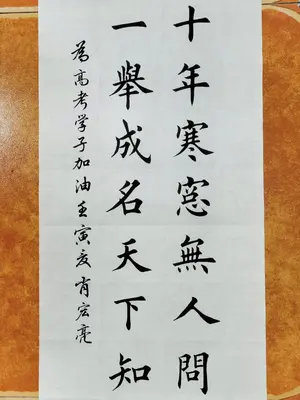 十年寒窓無人問
一舉成名天下知
為高考学子加油壬寅友肖宏亮